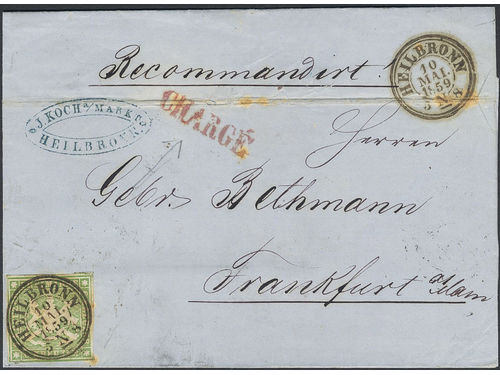 Recommandirt.
HEILBRONN
10
MAI
1859
5 N 8
J. KOCH a/ MARKT
HEILBRONN
CHARGÉ
Herren
Gebr. Bethmann
Frankfurt a/Main
HEILBRONN
10
MAI
1859
5 N 8